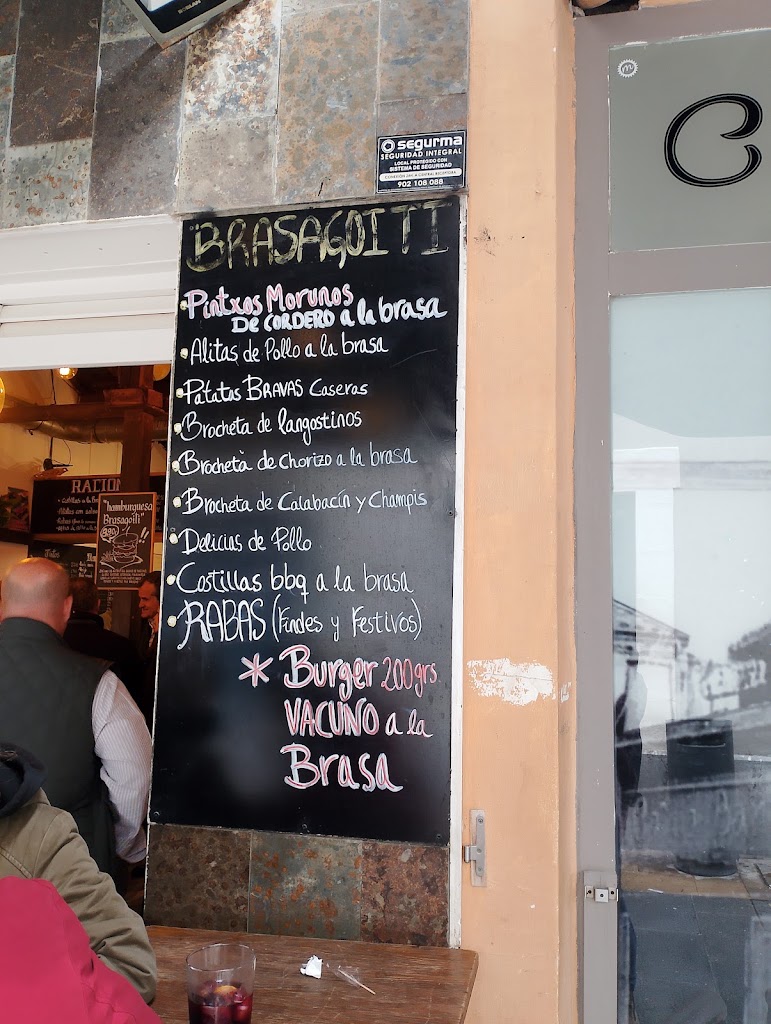 segurma
SEGURIDAD INTEGRAL
LOCAL PROTEGIDO CON
SISTEMA DE SEGURIDAD
902 108 088
m
C
BRASAGOITI
Pintxos Morunos
DE CORDERO a la brasa
Alitas de Pollo a la brasa
Patatas BRAVAS Caseras
Brocheta de langostinos
Brocheta de Chorizo a la brasa
Brocheta de Calabacín y Champis
Delicias de Pollo
Costillas bbq a la brasa
RABAS (Findes y Festivos)
* Burger 200grs
VACUNO a la
Brasa
RACION
"hamburguesa
Brasagoiti"